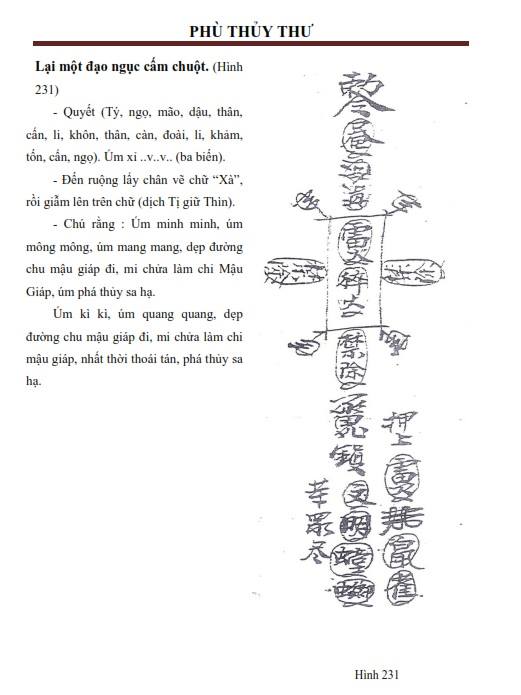 PHÙ THỦY THƯ
Lại một đạo ngục cấm chuột. (Hình
231)
- Quyết (Tý, ngọ, mão, dậu, thân,
cấn, li, khôn, thân, càn, đoài, li, khảm,
tốn, cấn, ngọ). Úm xi ..v..v.. (ba biến).
- Đến ruộng lấy chân vẽ chữ “Xà”,
rồi giẫm lên trên chữ (dịch Tị giữ Thìn).
- Chú rằng : Úm minh minh, úm
mông mông, úm mang mang, dẹp đường
chu mậu giáp đi, mi chửa làm chi Mậu
Giáp, úm phá thủy sa hạ.
Úm kì kì, úm quang quang, dẹp
đường chu mậu giáp đi, mi chửa làm chi
mậu giáp, nhất thời thoái tán, phá thủy sa
hạ.
雷
禁
除
鎮
押
上
雷
明
雀
Hình 231